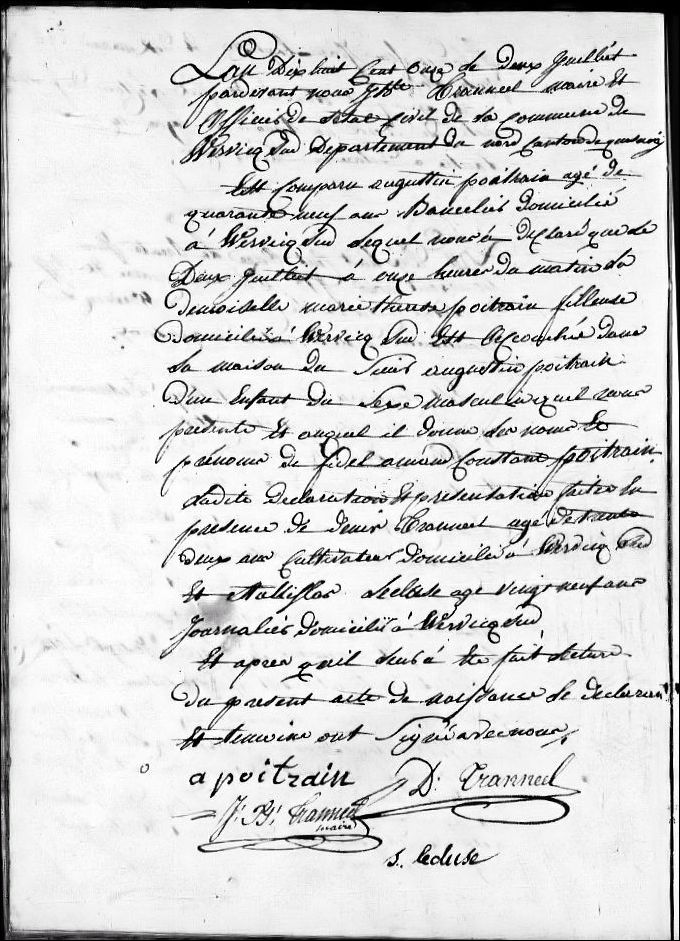 Lan Dix huit Cent Onze le deux Juillet
pardevant nous Jbte Tranneel maire Et
Officier de l'etat Civil de la commune de
Wervicq Sud Departement du nord Canton de quesnoy
Est Comparu augustin poitrain agé de
quarante neuf ans Bancelier Domicilié
à Wervicq Sud lequel nous à declaré que le
Deux Juillet à onze heures du matin la
demoiselle marie therese poitrain filleuse
domiciliée à Wervicq Sud Est accouchée dans
la maison du Sieur augustin poitrain
d'un Enfant du Sexe masculin quel nous
presente Et auquel il donne les noms Et
prénoms de fidel amand Constant poitrain
ladite declaration Et presentation faites En
presence de denis Tranneel agé de trente
deux ans Cultivateur domicilié à Wervicq Sud
Et Stanislas Lecluse agé vingt neuf ans
Journalier domicilié à Wervicq Sud
Et apres qu'il leurs à Eté fait lecture
du present acte de naissance le declarant
Et temoins ont Signé avec nous
a poitrain D. Tranneel
J. Bt. Tranneel
maire
s. lecluse